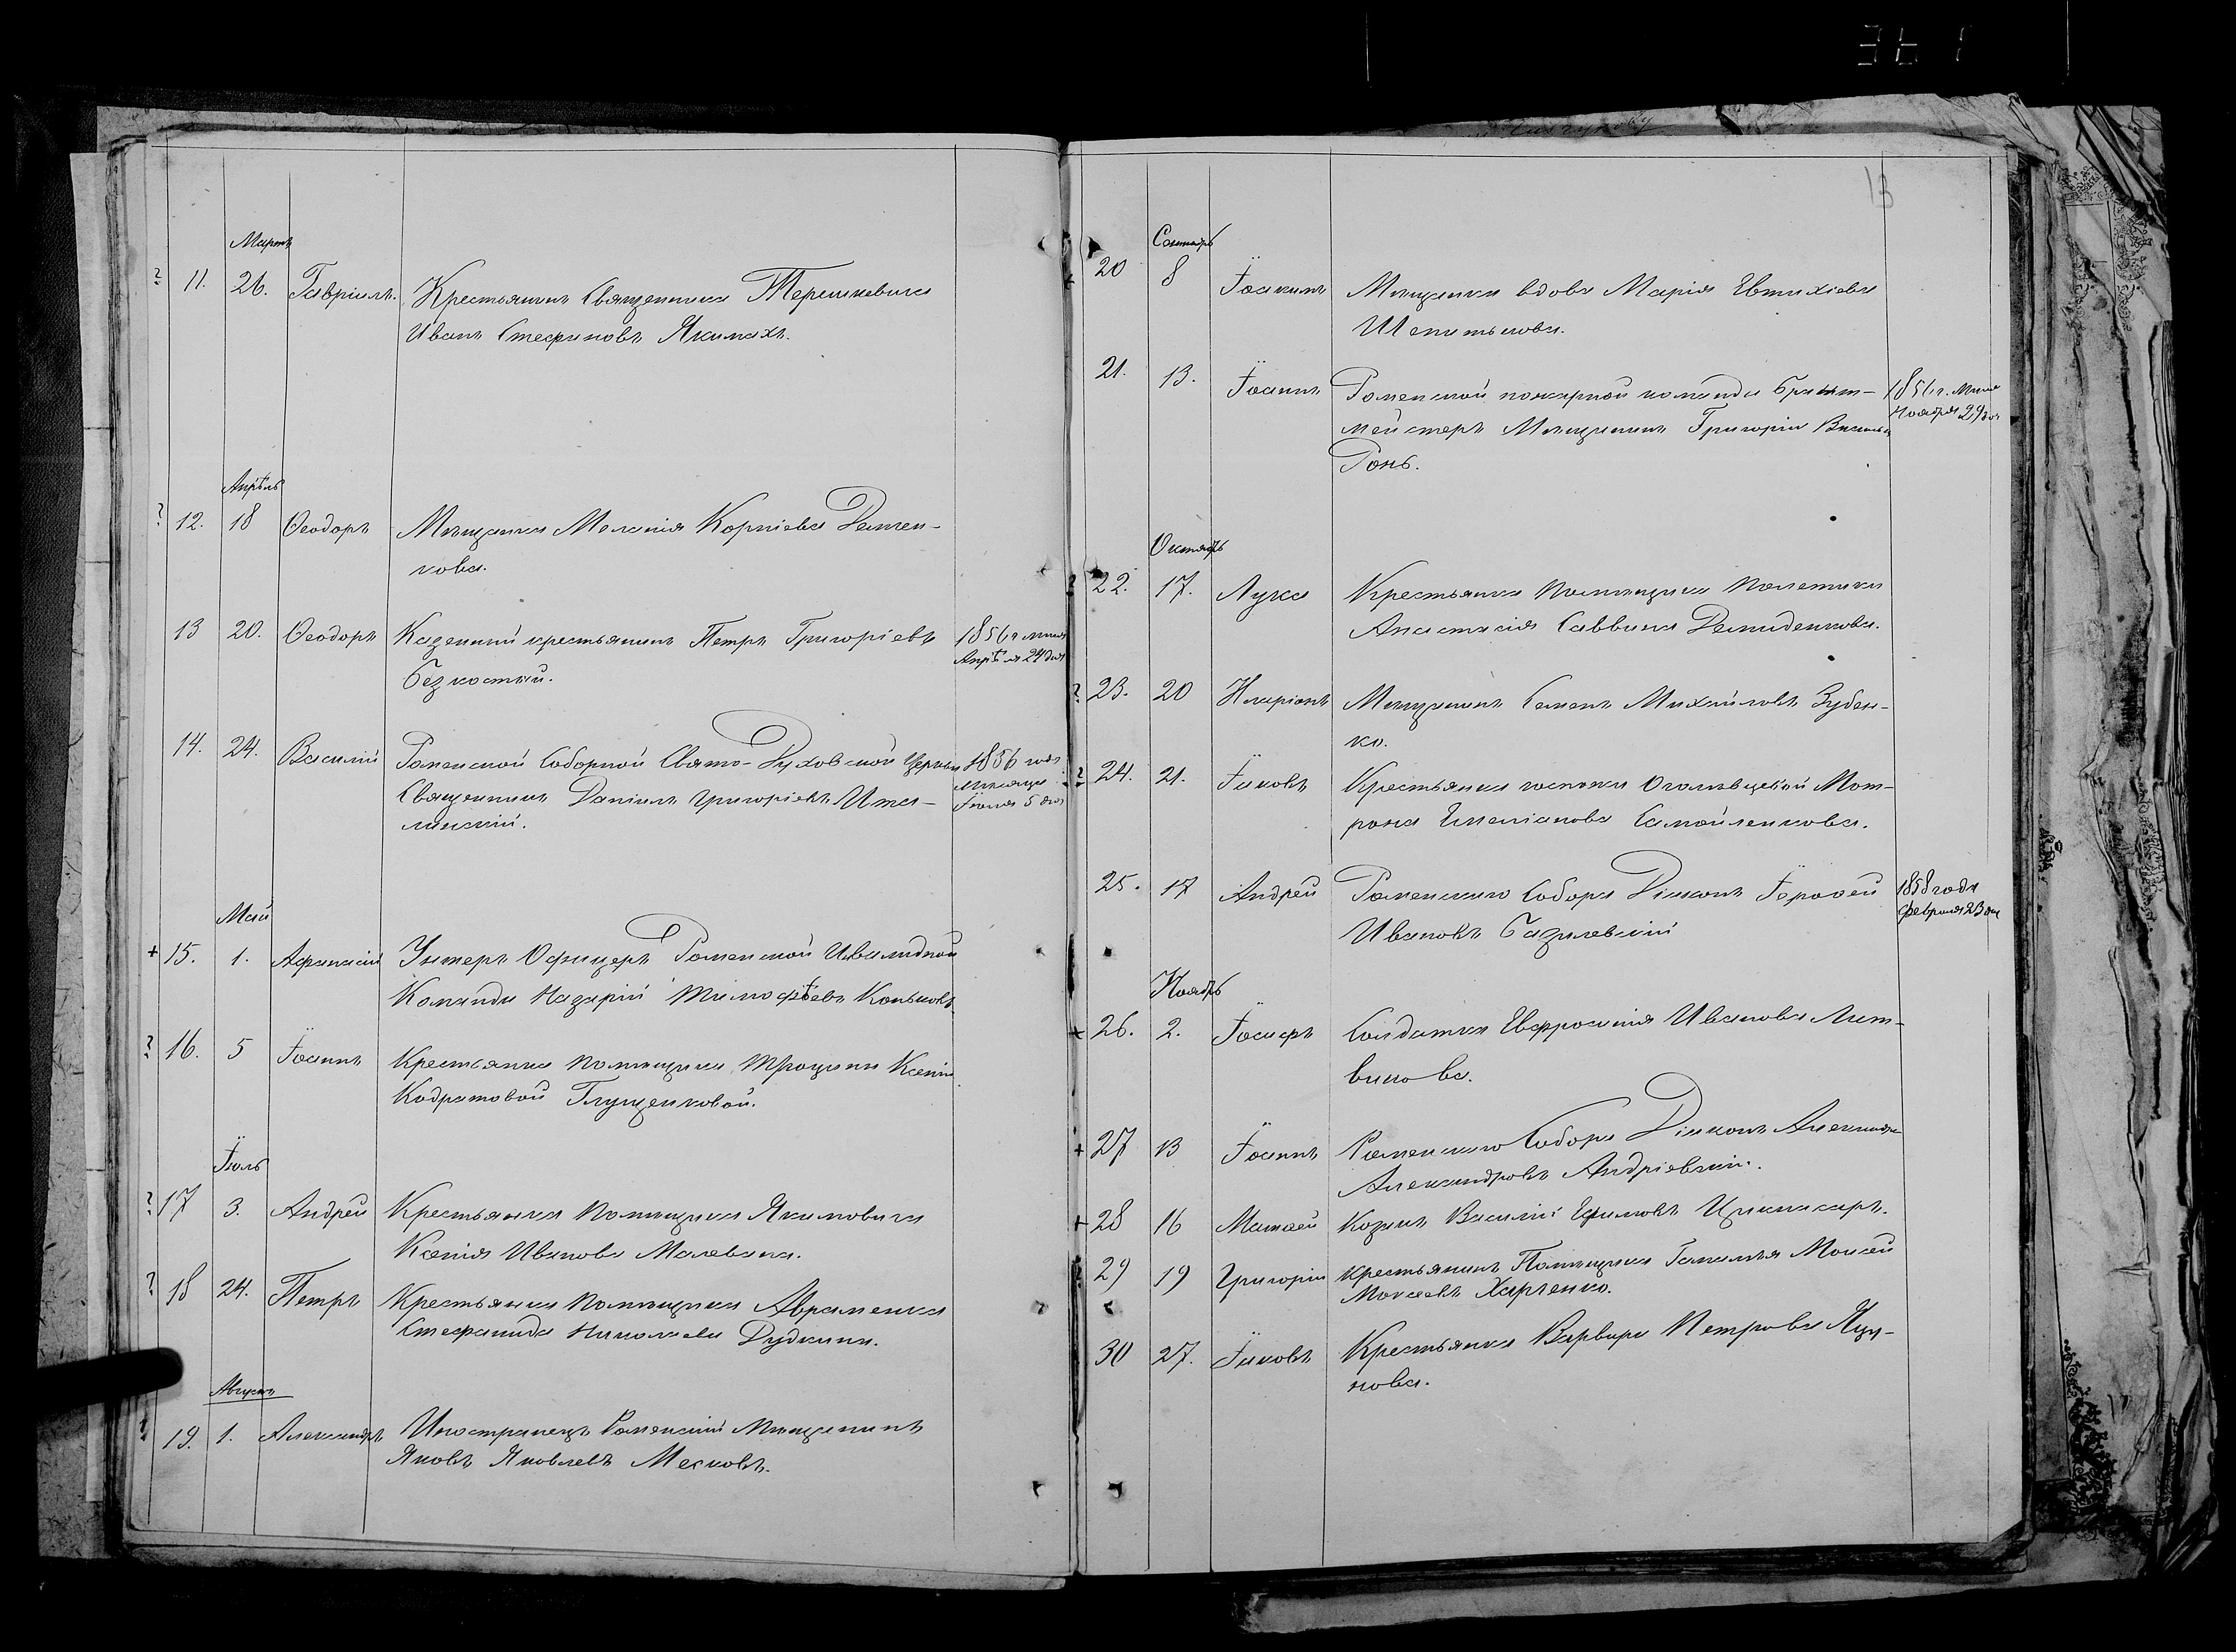 Мартъ
11. 26. Гавріилъ. Крестьянинъ Священника Терешкевича
Иванъ Стефановъ Якимахъ.
Апрѣль
12. 18 Ѳеодоръ Мѣщанка Меланія Корніева Даттен-
кова.
13 20. Ѳеодоръ Казенный крестьянинъ Петръ Григоріевъ 1856 г. мица
Безкостый. Апрѣля 24 дня
14. 24. Василій Роменской Соборной Свято-Духовской Церкви 1856 года
Священникъ Даніилъ Григоріевъ Мѣсяца
линскій. Іюля 5 дня
Май
+ 15. 1. Афанасій Унтеръ Офицеръ Роменской Инвалидной
Команды Назарій Тимофѣевъ Коньковъ
? 16. 5 Іоаннъ Крестьянка помѣщика Троцини Ксенія
Кодратовой Глущенковой.
Іюль
? 17 3. Андрей Крестьянка помѣщика Якимовича
Ксенія Иванова Малевана.
? 18 24. Петръ Крестьянка помѣщика Авраменка
Стефанида Николаева Дудкина.
Августъ
19. 1. Александръ Иностранецъ Роменскій мѣщанинъ
Яковъ Яковлевъ Месковъ.
13
Сентябрь
20 8 Іоакимъ Мѣщанка вдова Марія Евтихіева
Шепитькова.
21. 13. Іоаннъ Роменской пожарной команды Брант- 1856 г. мица
мейстеръ Мѣщанинъ Григорій Васильевъ Ноября 29 дня
Ронь.
Октябрь
22. 17. Лука Крестьянка Помѣщика Полетики
Анастасія Саввина Демиденкова.
? 23. 20 Иларіонъ Мѣщанинъ Семенъ Михайловъ Зубен-
ко.
? 24. 21. Іаковъ Крестьянка госпожи Огалѣвцевой Мот-
рона Емеліанова Самойленкова.
25. 17 Андрей Роменскаго Собора Діаконъ Іероѳей 1858 года
Ивановъ Базилевскій Февраля 23 дня
Ноябрь
+ 26. 2. Іосифъ Солдатка Евфросинія Иванова Лит-
винова.
+ 27 13 Іоаннъ Роменскаго Собора Діаконъ Александръ
Александровъ Андріевскій.
+ 28 16 Матѳей Козакъ Василій Ефимовъ
29 19 Григорій Крестьянинъ Помѣщика Гамалѣя Моисей
Моисеевъ Харченко.
30 27. Іаковъ Крестьянка Варвара Петрова Яцы-
нова.